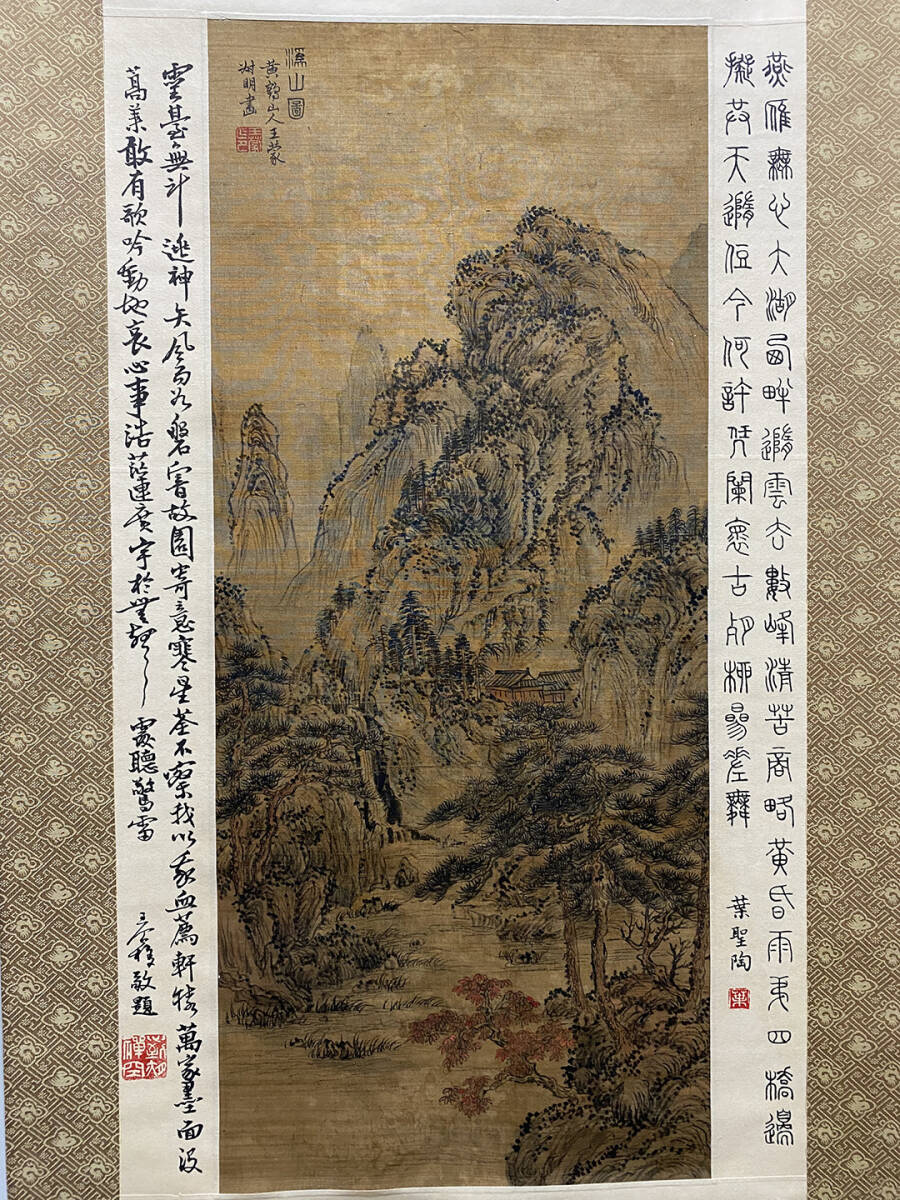 燕雁無心太湖西畔隨雲去數峰清苦商略黃昏雨弟四橋邊
擬共天隨住今何許凭闌懷古殘柳參差舞
葉聖陶
葉
溪山圖
黃鶴山人王蒙
叔明畫
靈臺無計逃神矢風雨如磐闇故園寄意寒星荃不察我以我血薦軒轅萬家墨面沒
蒿萊敢有歌吟動地哀心事浩茫連廣宇於無聲處聽驚雷
敬題